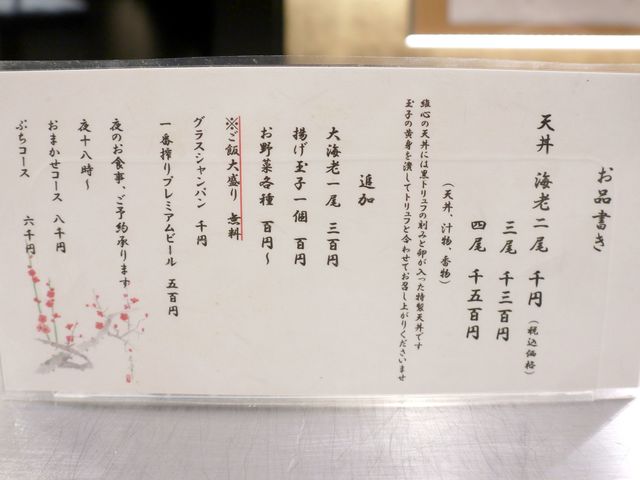 お品書き
天丼 海老二尾 千円 (税込価格)
三尾 千三百円
四尾 千五百円
(天丼、汁物、香物)
維心の天丼には黒トリュフの刻みと卵が入った特製天丼です
玉子の黄身を潰してトリュフと合わせてお召し上がりくださいませ
追加
大海老一尾 三百円
揚げ玉子一個 百円
お野菜各種 百円~
※ご飯大盛り 無料
グラスシャンパン 千円
一番搾りプレミアムビール 五百円
夜のお食事、ご予約承ります
夜十八時~
おまかせコース 八千円
ぷちコース 六千円